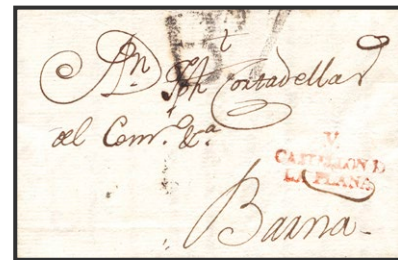 An
t
Jph Cortadellas
del Comr. &a
V.
CASTELLON D
LA PLANA
Barna